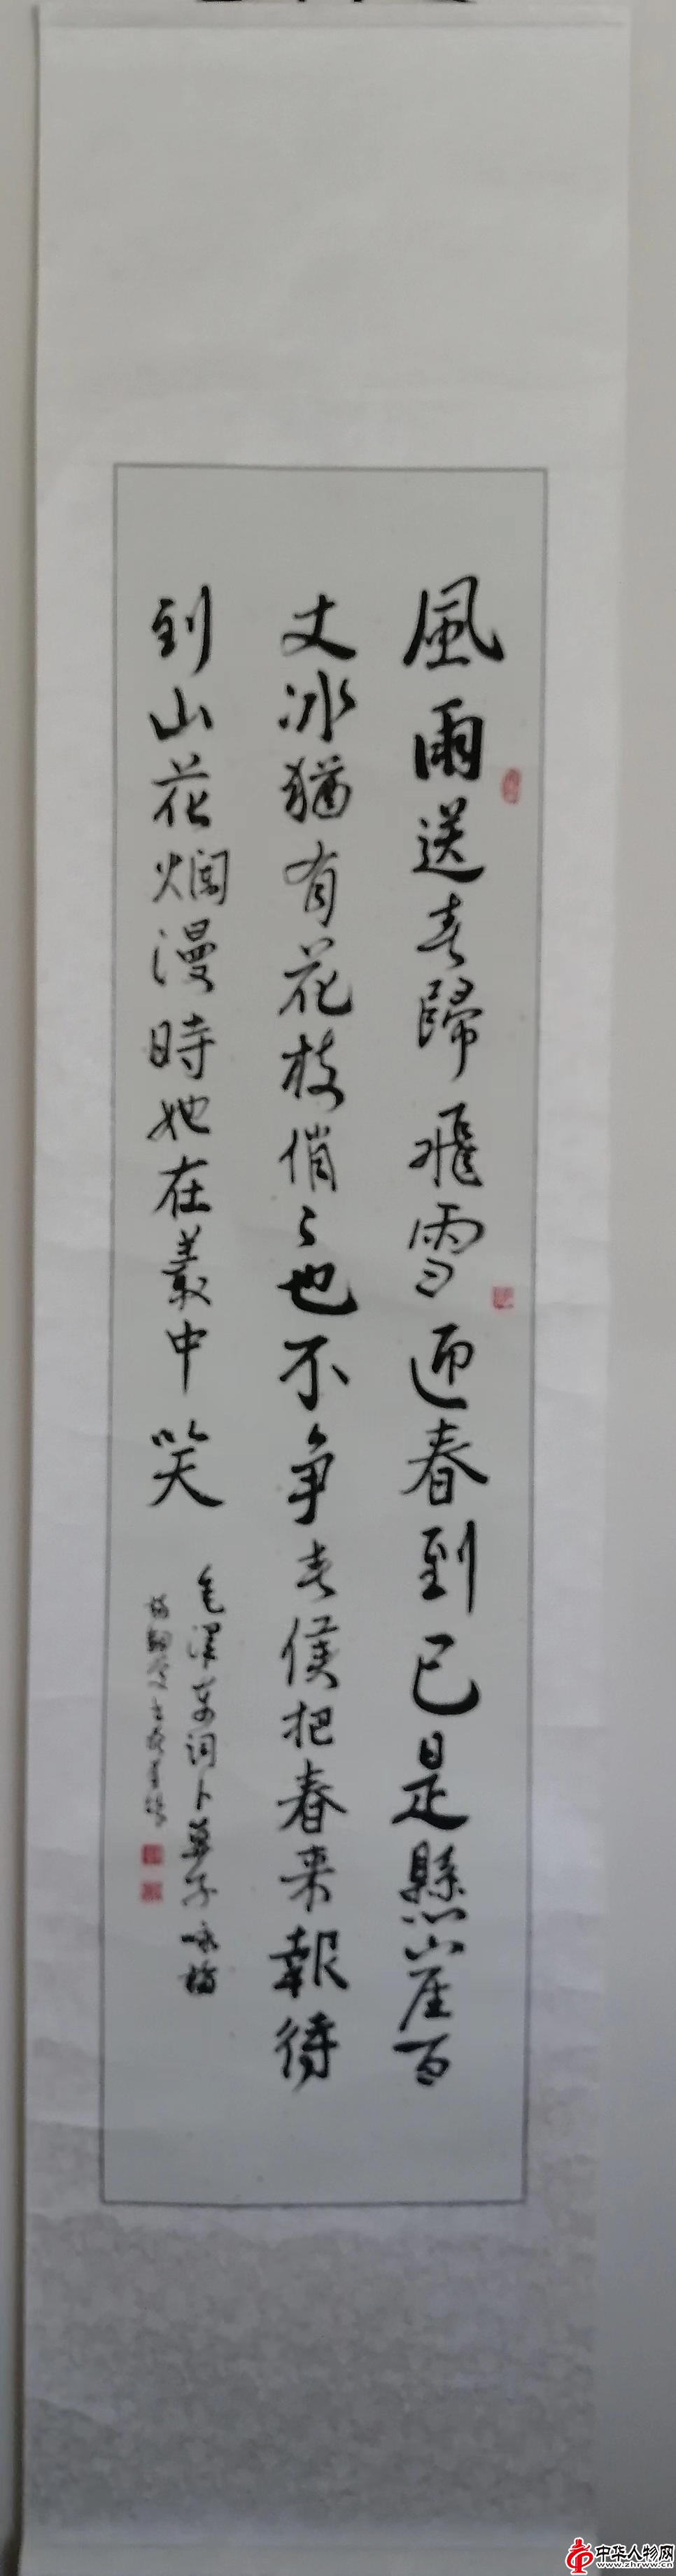 風雨送春歸飛雪迎春到已是懸崖百
丈冰猶有花枝俏〻也不爭春僅把春來報待
到山花爛漫時她在叢中笑
毛澤東詞卜算子咏梅
中华人物网
www.zhrww.cn